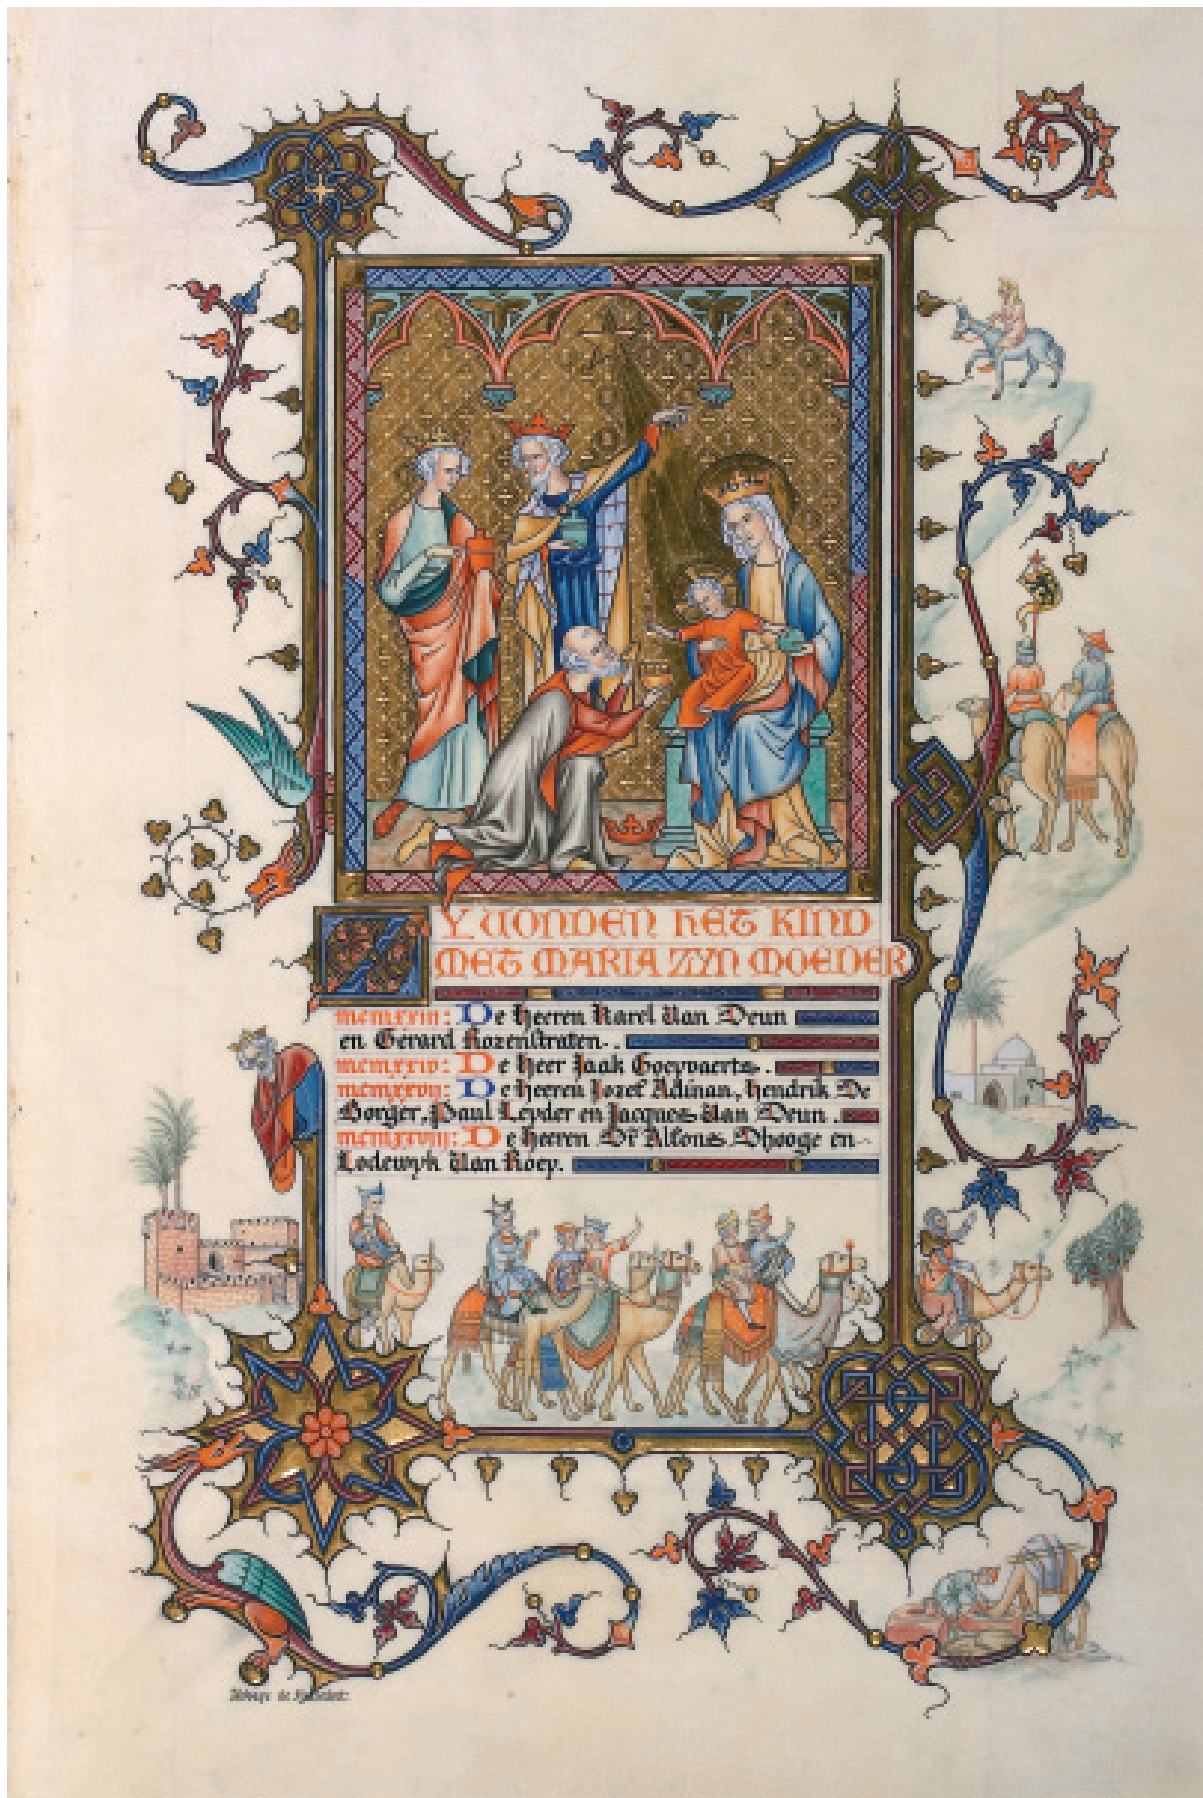 ZY VONDEN HET KIND
MET MARIA ZYN MOEDER
mcmxxiii: De Heeren Karel Van Deun
en Gerard Rozenstraten.
mcmxxiv: De Heer Jaak Goeyvaerts.
mcmxxvii: De Heeren Jozef Adinan, Hendrik De
Borger, Paul Leyder en Jacques Van Deun.
mcmxxviii: De Heeren Dr Alfons Dhooge en
Lodewyk Van Roey.
Abbaye de